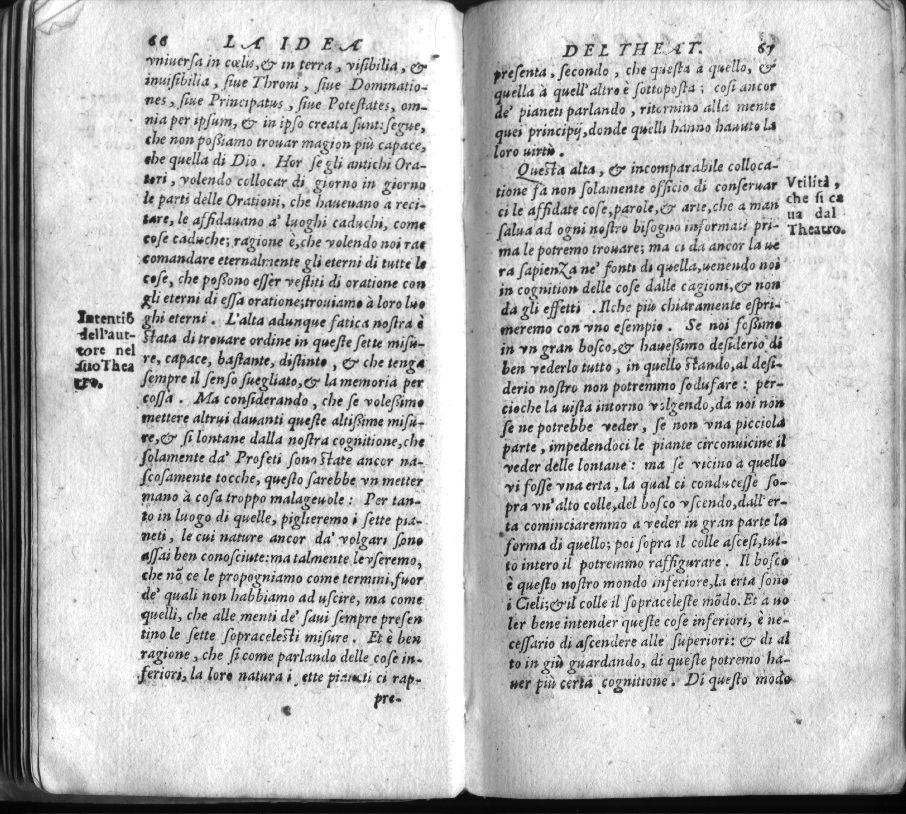 66 LA IDEA
vniuersa in cœlis, & in terra, visibilia, &
inuisibilia, siue Throni, siue Dominatio-
nes, siue Principatus, siue Potestates, om-
nia per ipsum, & in ipso creata sunt: segue,
che non possiamo trouar magion più capace,
che quella di Dio. Hor se gli antichi Ora-
tori, volendo collocar di giorno in giorno
le parti delle Orationi, che haueuano a reci-
tare, le affidauano a' luoghi caduchi, come
cose caduche; ragione è, che volendo noi rac
comandare eternalmente gli eterni di tutte le
cose, che possono esser vestiti di oratione con
gli eterni di essa oratione; trouiamo à loro luo
ghi eterni. L'alta adunque fatica nostra è
stata di trouare ordine in queste sette misu-
re, capace, bastante, distinto, & che tenga
sempre il senso suegliato, & la memoria per
cossa. Ma considerando, che se volessimo
mettere altrui dauanti queste altissime misu-
re, & si lontane dalla nostra cognitione, che
solamente da' Profeti sono state ancor na-
scosamente tocche, questo sarebbe vn metter
mano à cosa troppo malageuole: Per tan-
to in luogo di quelle, piglieremo i sette pia-
neti, le cui nature ancor da' volgari sono
assai ben conosciute: ma talmente le vseremo,
che nõ ce le propogniamo come termini, fuor
de' quali non habbiamo ad uscire, ma come
quelli, che alle menti de' saui sempre presen
tino le sette sopracelesti misure. Et è ben
ragione, che si come parlando delle cose in-
feriori, la loro natura i sette pianeti ci rap-
pre-
Intentiõ
dell'aut-
tore nel
suo Thea
tro.
DEL THEAT. 67
presenta, secondo, che questa à quello, &
quella à quell'altro è sottoposta; cosi ancor
de' pianeti parlando, ritornino alla mente
quei principij, donde quelli hanno hauuto la
loro uirtù.
Questa alta, & incomparabile colloca-
tione fa non solamente officio di conseruar
ci le affidate cose, parole, & arte, che a man
salua ad ogni nostro bisogno informati pri-
ma le potremo trouare; ma ci da ancor la ue
ra sapienza ne' fonti di quella, uenendo noi
in cognition delle cose dalle cagioni, & non
da gli effetti. Ilche più chiaramente espri-
meremo con vno esempio. Se noi fossimo
in vn gran bosco, & hauessimo desiderio di
ben vederlo tutto, in quello stando, al desi-
derio nostro non potremmo sodisfare: per-
cioche la uista intorno volgendo, da noi non
se ne potrebbe veder, se non vna picciola
parte, impedendoci le piante circonuicine il
veder delle lontane: ma se vicino a quello
vi fosse vna erta, la qual ci conducesse so-
pra vn'alto colle, del bosco vscendo, dall'er-
ta cominciaremmo a veder in gran parte la
forma di quello; poi sopra il colle ascesi, tut-
to intero il potremmo raffigurare. Il bosco
è questo nostro mondo inferiore, la erta sono
i Cieli; & il colle il sopraceleste mõdo. Et a uo
ler bene intender queste cose inferiori, è ne-
cessario di ascendere alle superiori: & di al
to in giù guardando, di queste potremo ha-
uer più certa cognitione. Di questo modo
Vtilità,
che si ca
ua dal
Theatro.